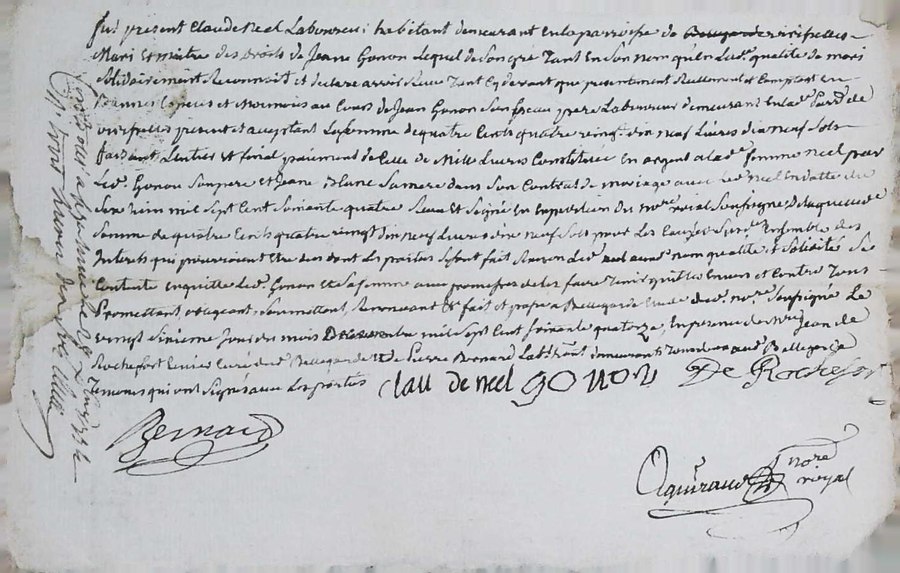 fut présent Claude Neel Laboureur habitant demeurant en la parroisse de virifselles
Mari et maitre des droits de Jeane Gonon Lequel de son gré Tant En Son nom qu'en Lad. qualité de mari
solidairement Reconnoit et declare avoir Receu Tant Cydevant que presentement Reellement et Comptant en
et Monnoies au Cours de Jean Gonon Son beau pere Laboureur demeurant En lad. parr. de
virifselles present et acceptant La somme de quatre Cents quatre vingt dix neuf Livres dix neuf sols
faisant L'entier et final paiement de Celle de Mille Livres Constituée En argent a lad. femme neel par
Led. Gonon Son pere et Jeane Blanc Sa mere dans Son Contrat de mariage avec led. neel En datte du
mil sept Cent soixante quatre Receu et Signé En Expedition du no.re royal Soussigné De laquelle
Somme de quatre Cents quatre vingt dix neuf Livres dix neuf Sols pour Les Causes Susd. Ensemble des
Interets qui pourroient Etre dus dont Les parties se sont fait Raison Led. neel aud. nom qualité et Solidité Se
Contente En quitte Led. Gonon Et Sa femme avec promesse de les faire Tenir quittes Envers et Contre Tous
Promettant obligeant Soumettant Renonceant &c fait et passé a Bellegarde Etude dud. no.re Soussigné Le
vingt Sixieme Jour du mois mil sept Cent Soixante quatorze, En presence de M.re Jean de
Rochefort Curé dud. Bellegarde Et de Pierre Bernard Lab. demeurants Tous deux aud. Bellegarde
temoins qui ont Signés avec Les parties
Clau de neel gonon De Rochefort
Bernard
no.re
royal